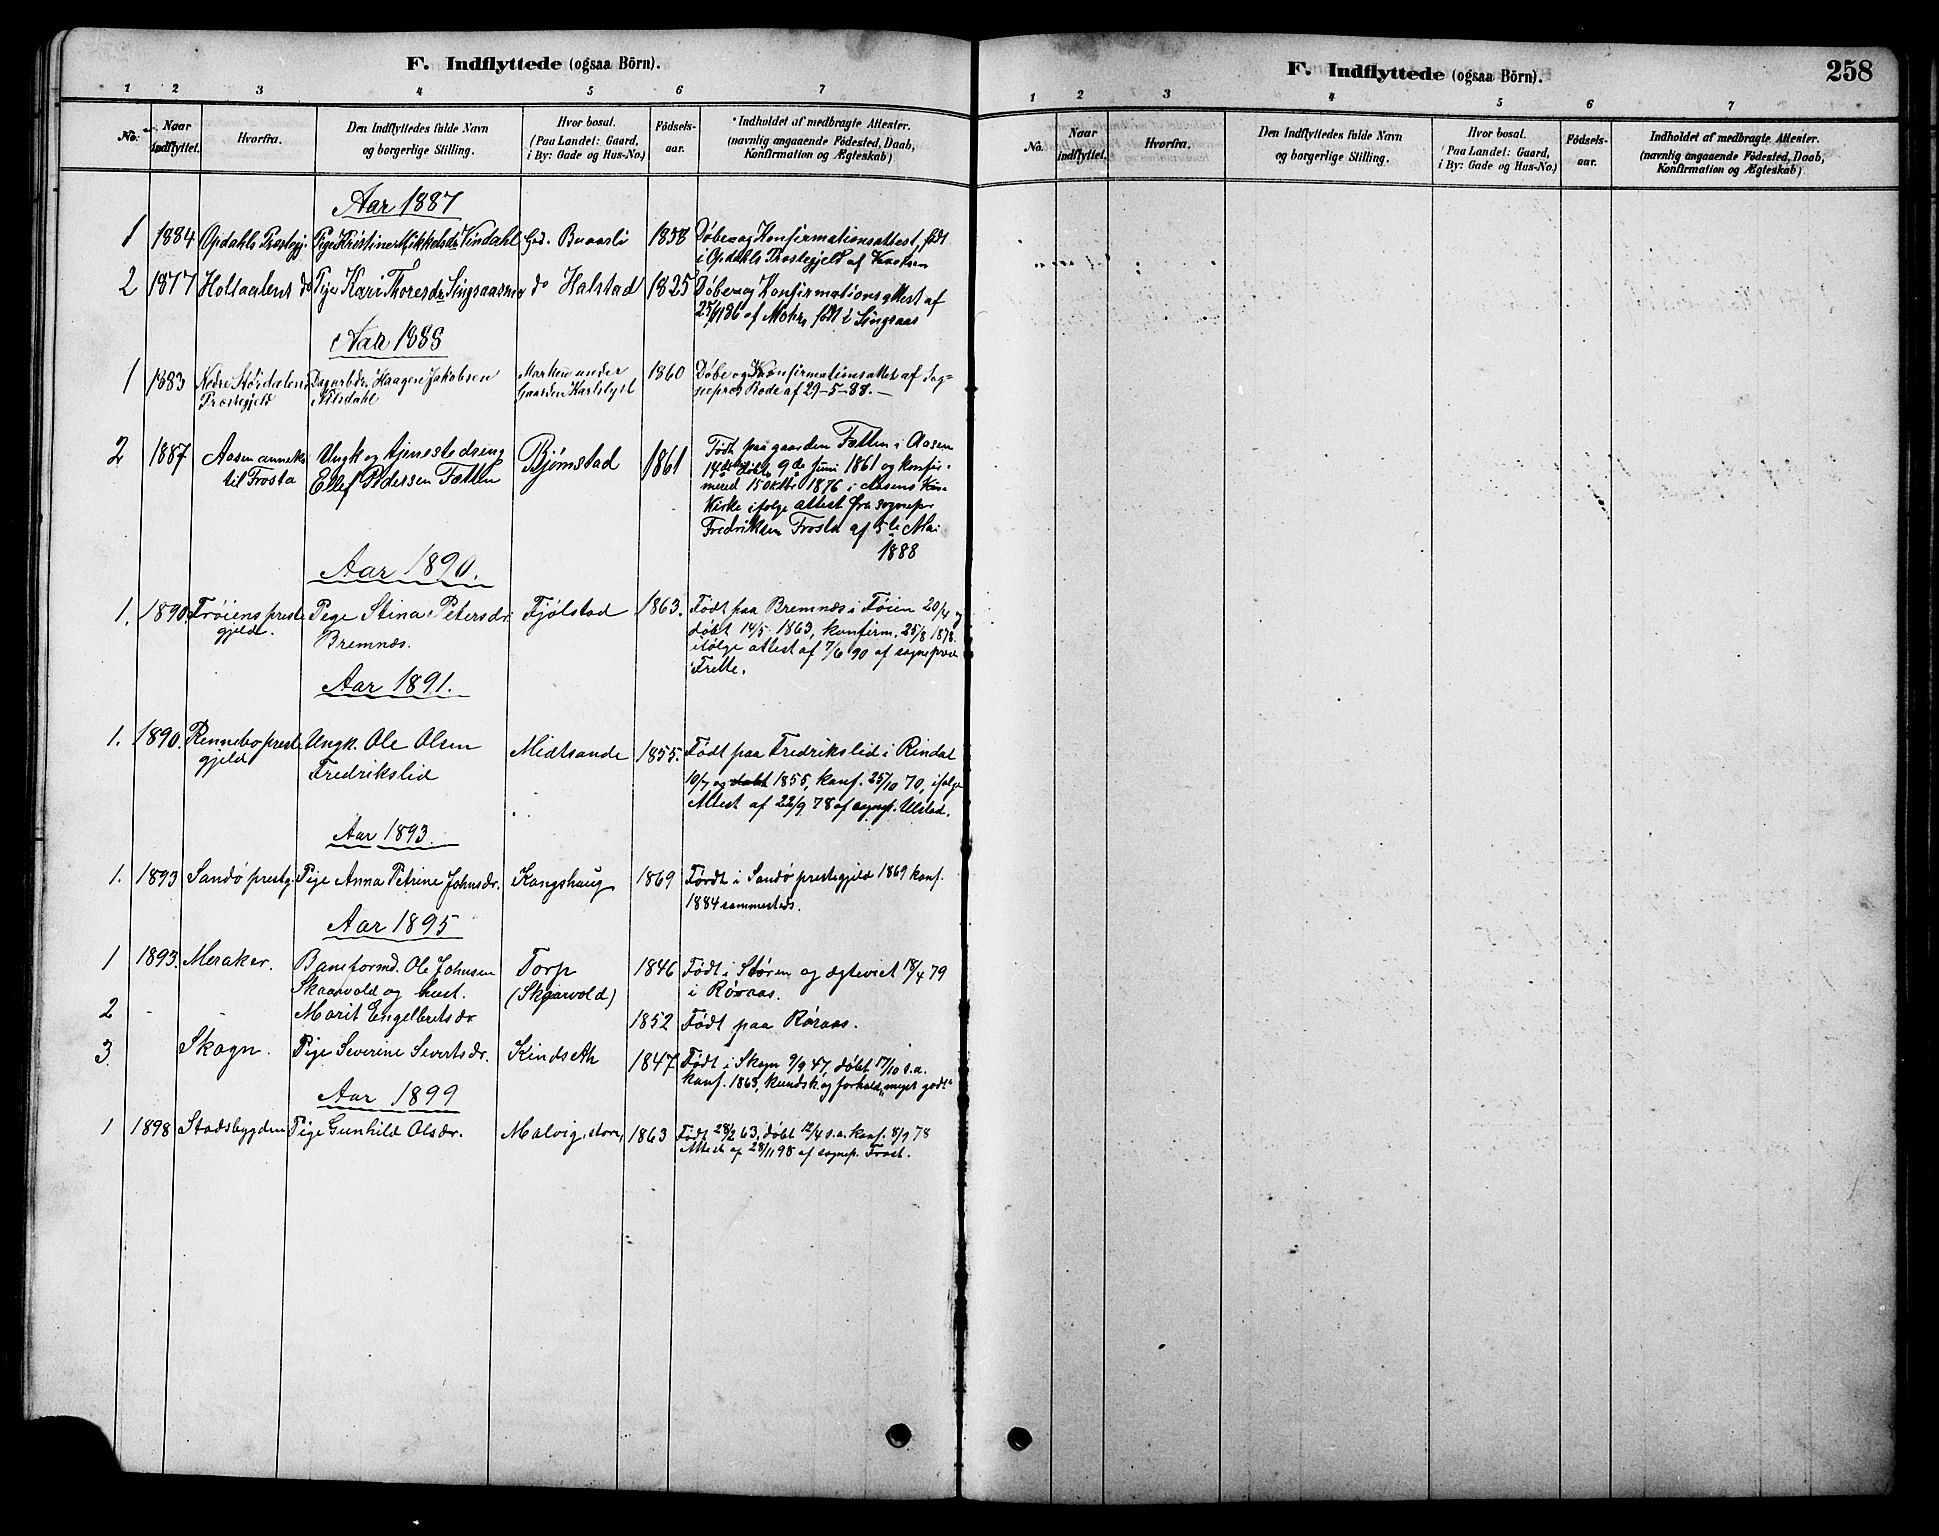 F. Indflyttede (ogsaa Börn).
1 2 3 4 5 6 7
No. Naar indflyttet. Hvorfra. Den Indflyttedes fulde Navn og borgerlige Stilling. Hvor bosat. (Paa Landet: Gaard, i By: Gade og Hus-No.) Fødsels-aar. Indholdet af medbragte Attester. (navnlig angaaende Fødested, Daab, Konfirmation og Ægteskab)
Aar 1887
1 1884 Opdahls Præstegj. Pige Kristine Mikkelsdr Vindahl Gd. Buaasli 1858 Døbe og Konfirmationsattest, født
i Opdahls Præstegjeld af
2 1877 Holtaalens do Pige Kari Thoresdr Singsaasmo do Halstad 1825 Døbe og Konfirmationsattest af
25/1186 af Mohr, født i Singsaas
Aar 1888
1 1883 Nedre Størdalens Dagarbdr. Haagen Jakobsen Marken under 1860 Døbe og Konfirmationsattest af Sog=
Præstegjeld Gaarden Karlslyst nepræst Rode af 29-5-88.-
2 1887 Aasen anneks Ungk og tjenestedreng Bjørnstad 1861 Født paa gaarden Fættten i Aasen
til Frosta Ellef Pedersen Fætten 14de døbt 9de Juni 1861 og konfir-
mered 15 oktbr 1876 i Aasens
Kirke ifølge attest fra sognepr
Fredriksen Frosta af 5te Mai
1888
Aar 1890.
1. 1890 Frøiens preste Pige Stina Petersdr. Fjølstad 1863. Født paa Bremnæs i Føien 20/4 og
gjeld. Bremnæs. døbt 14/5 1863, konfirm. 25/8 1878
ifølge attest af 7/6 90 af sogneprest
Frette.
Aar 1891.
1. 1890. Rennebo preste Ungk. Ole Olsen Midtsande 1855. Født paa Fredrikslid i Rindal
gjeld Fredrikslid 10/7 og døbt 1855, konf. 25/10 70, ifølge
Attest af 22/9 78 af sognepr. Ulstad.
Aar 1893.
1. 1893 Sandø prestg. Pige Anna Petrine Johnsdr. Kangshaug 1869 Født i Sandø prestegjeld 1869 konf.
1884 sammesteds.
Aar 1895
1 1893. Meraker. Baneformd. Ole Johnsen Torp 1846 Født i Støren og ægteviet 18/4 79
Skaarvold og hust. (Skjarvold) i Røraas.
2 - - Marit Engelbretsdr 1852 Født paa Røraas.
3 Skogn. Pige Severine Sivertsdr. Kindseth 1847 Født i Skogn 9/9 47, døbt 17/10 s.a.
konf. 1863, kundsk. og forhold "meget godt"
Aar 1899
1 1898 Stadsbygden Pige Gunhild Olsdr. Malvig, store, 1863 Født 28/2 63, døbt 12/4 s.a. konf. 8/9 78
Attest af 28/11 98 af sognep. Frost.
F. Indflyttede (ogsaa Börn).
258
1 2 3 4 5 6 7
No. Naar indflyttet. Hvorfra. Den Indflyttedes fulde Navn og borgerlige Stilling. Hvor bosat. (Paa Landet: Gaard, i By: Gade og Hus-No.) Fødsels-aar. Indholdet af medbragte Attester. (navnlig angaaende Fødested, Daab, Konfirmation og Ægteskab)